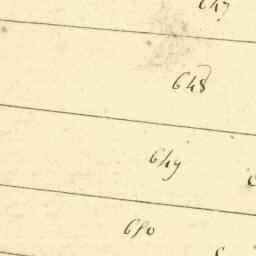 647
648
649
650